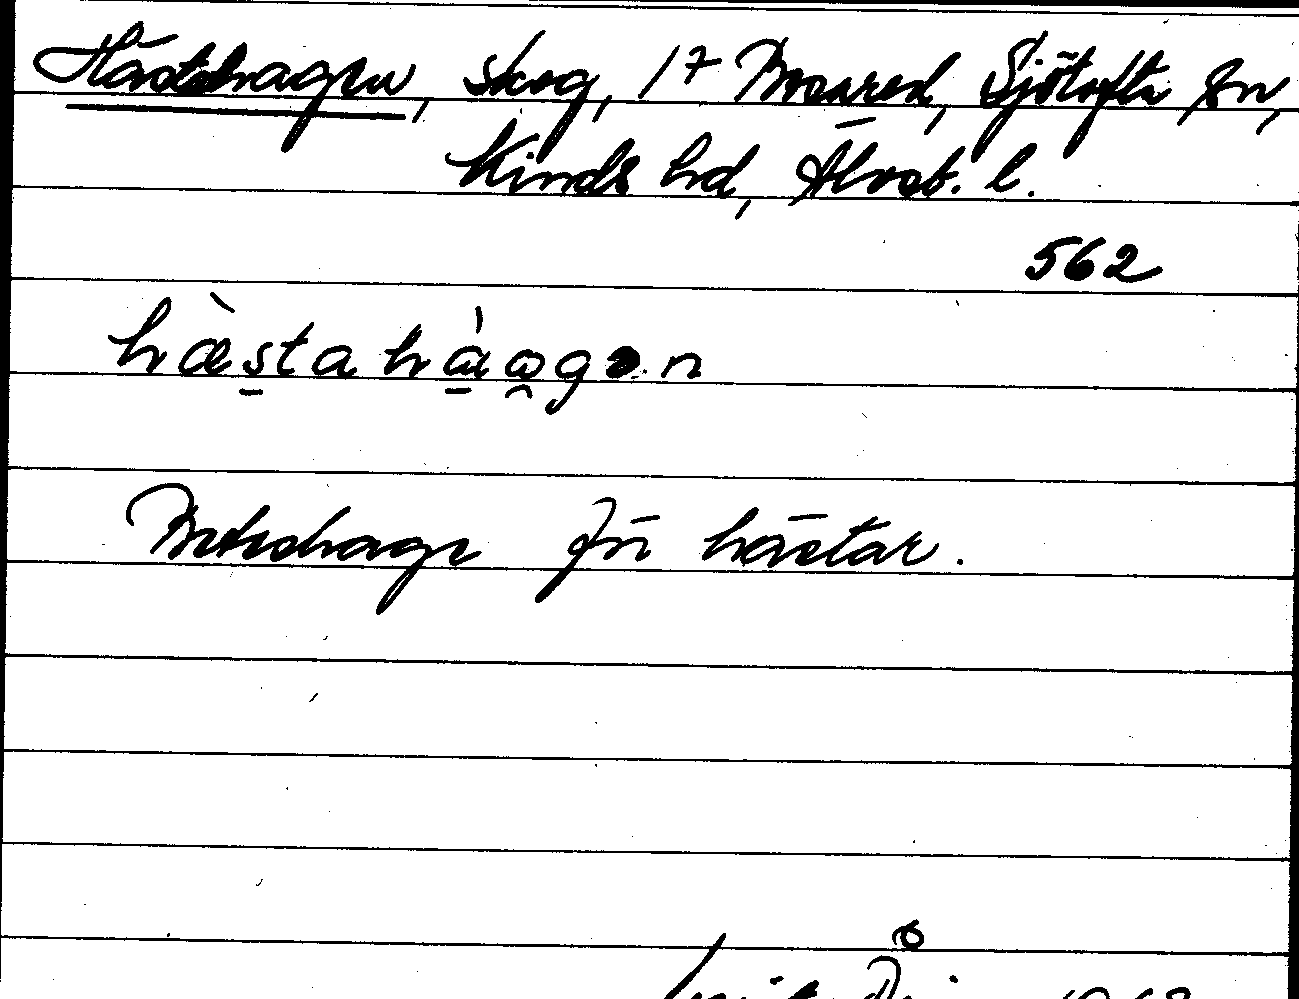 Hästahagen, skog, 17 Moared, Sjötofta sn,
Kinds hd, Älvsb. l.
562
hæ̀stahàagən
Beteshage för hästar.